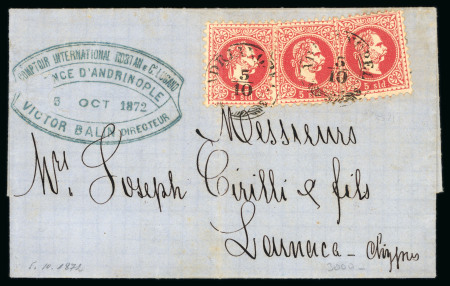 COMPTOIR INTERNATIONAL
NCE D'ANDRINOPLE
3 OCT 1872
VICTOR BALIN DIRECTEUR
5/10
5/10
5 sld
Messieurs
Mrs Joseph Cirilli & fils
Larnaca - Chypres